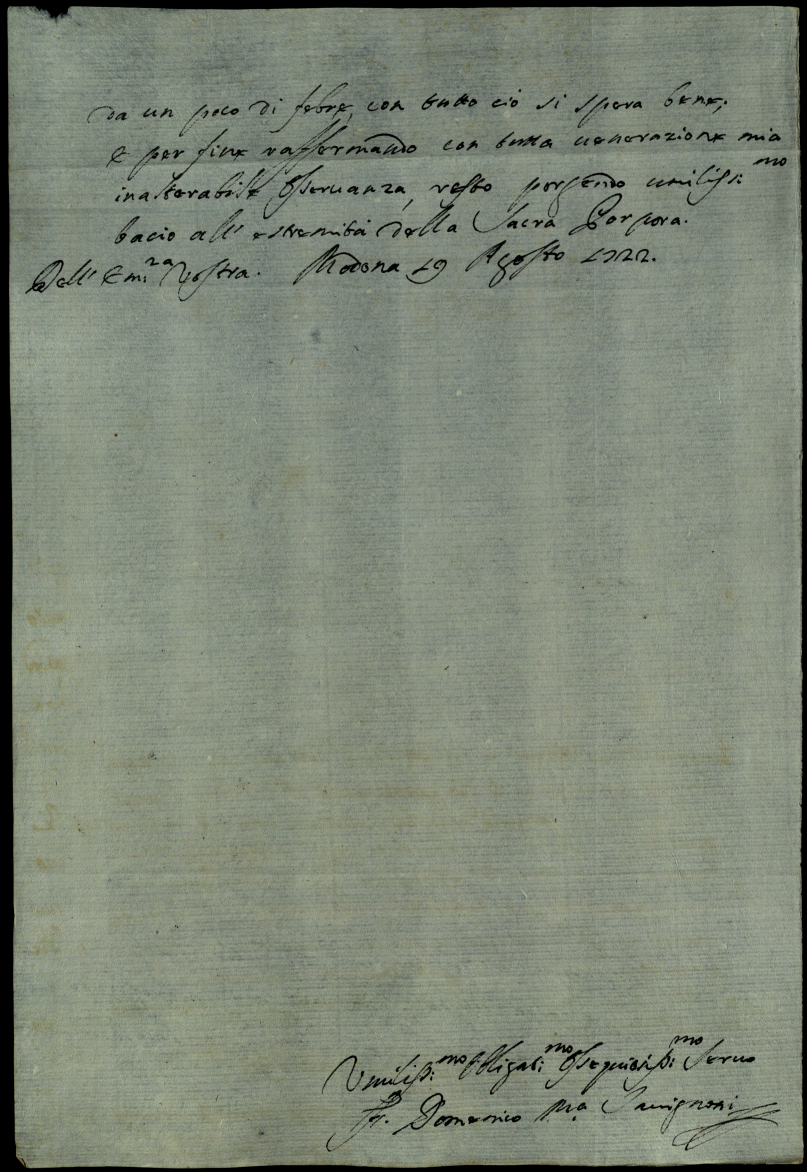 da un poco di febre, con tutto ciò si spera bene;
e per fine raffermando con tutta uenerazione mia
inalterabile osseruanza, resto porgendo umilissi:mo
bacio all' estremità della Sacra Porpora.
Dell' Emi:za Vostra. Modena 19 Agosto 1722.
Vmilissi:mo Obligati:mo Ossequiosissi:mo Seruo
Fr. Domenico Ma